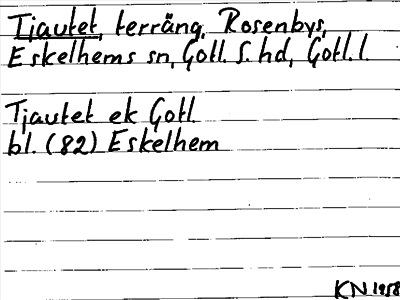 Tjautet, terräng, Rosenbys,
Eskelhems sn, Gotl. S. hd, Gotl. l.
Tjautet ek Gotl.
bl. (82) Eskelhem
KN 1958